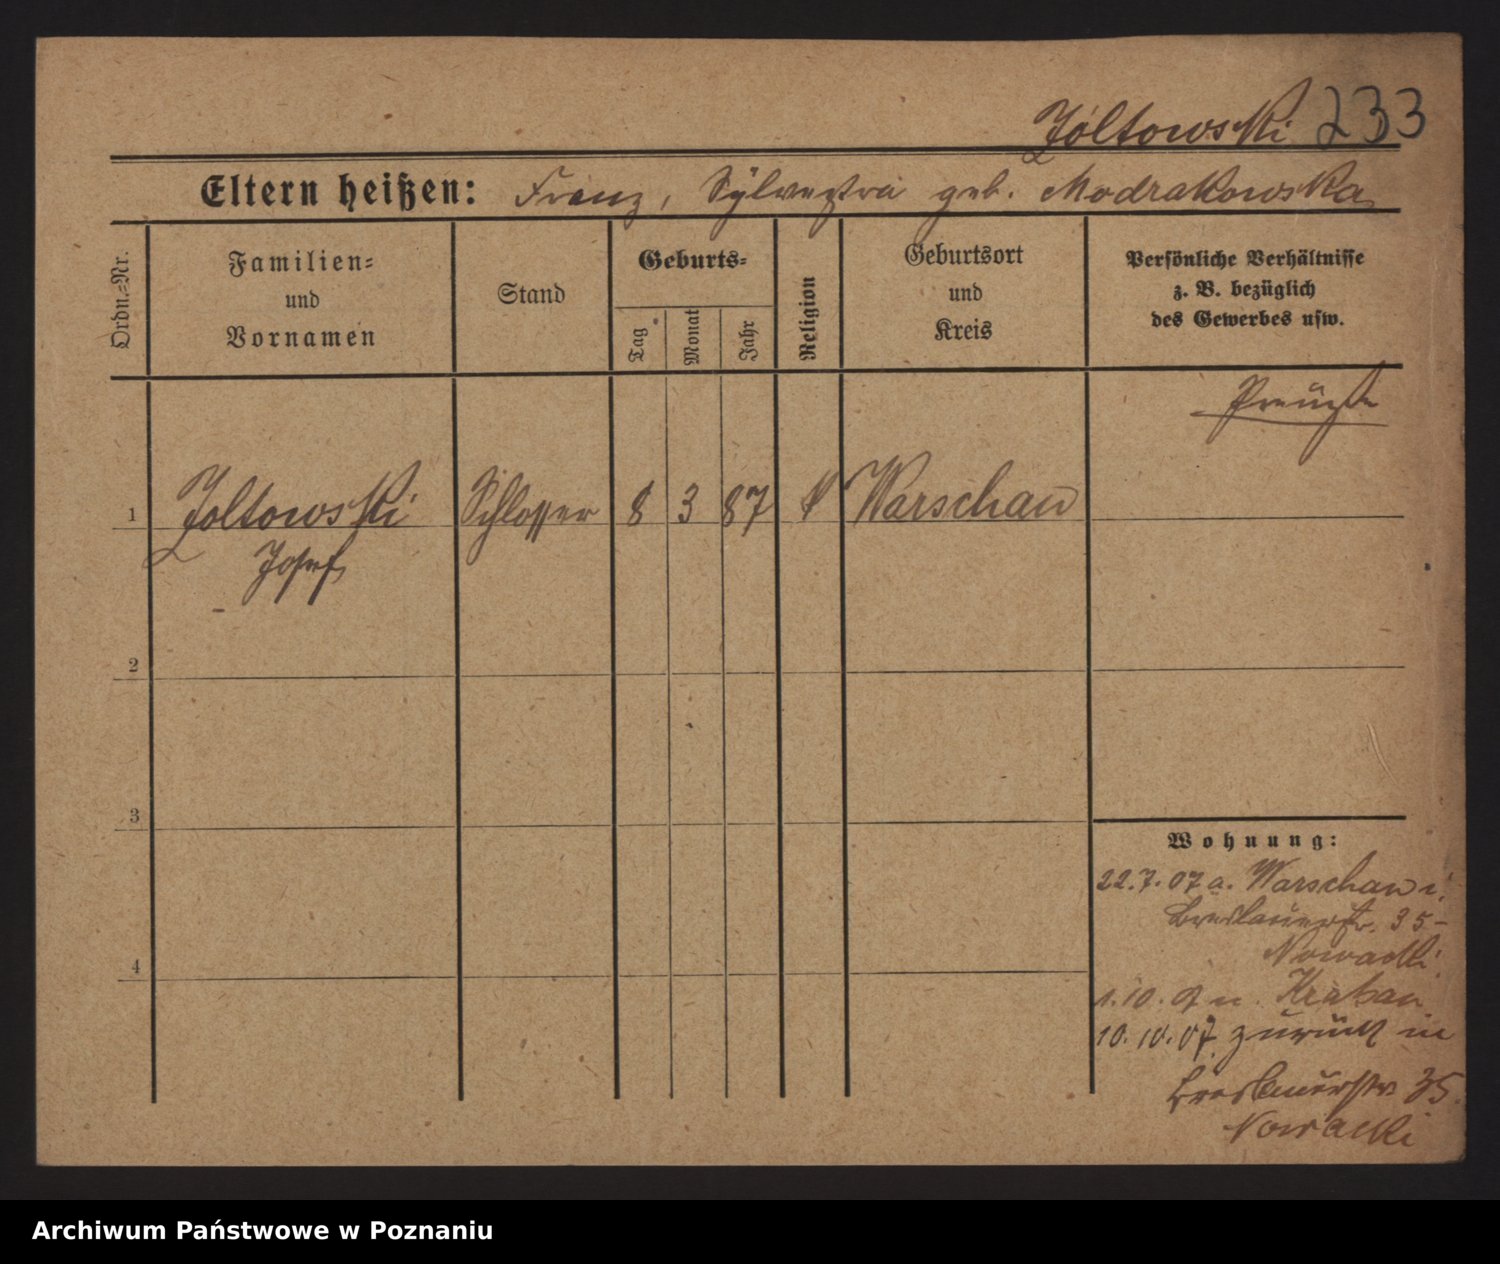 Zoltowski 233
Eltern heißen: Franz, Sylvestra geb. Modrakowska
Ordn.-Nr.
Familien-
und
Vornamen
Stand
Geburts-
Tag
Monat
Jahr
Religion
Geburtsort
und
Kreis
Persönliche Verhältnisse
z. B. bezüglich
des Gewerbes usw.
Preuße
1 Zoltowski Schlosser 8 3 87 k Warschau
Josef
2
3
4
Wohnung:
22.7.07 a. Warschau i.
Breslauerstr. 35-
Nowacki
1.10.07 n. Krakau
10.10.07 zurück in
Breslauerstr 35.
Nowacki
Archiwum Państwowe w Poznaniu